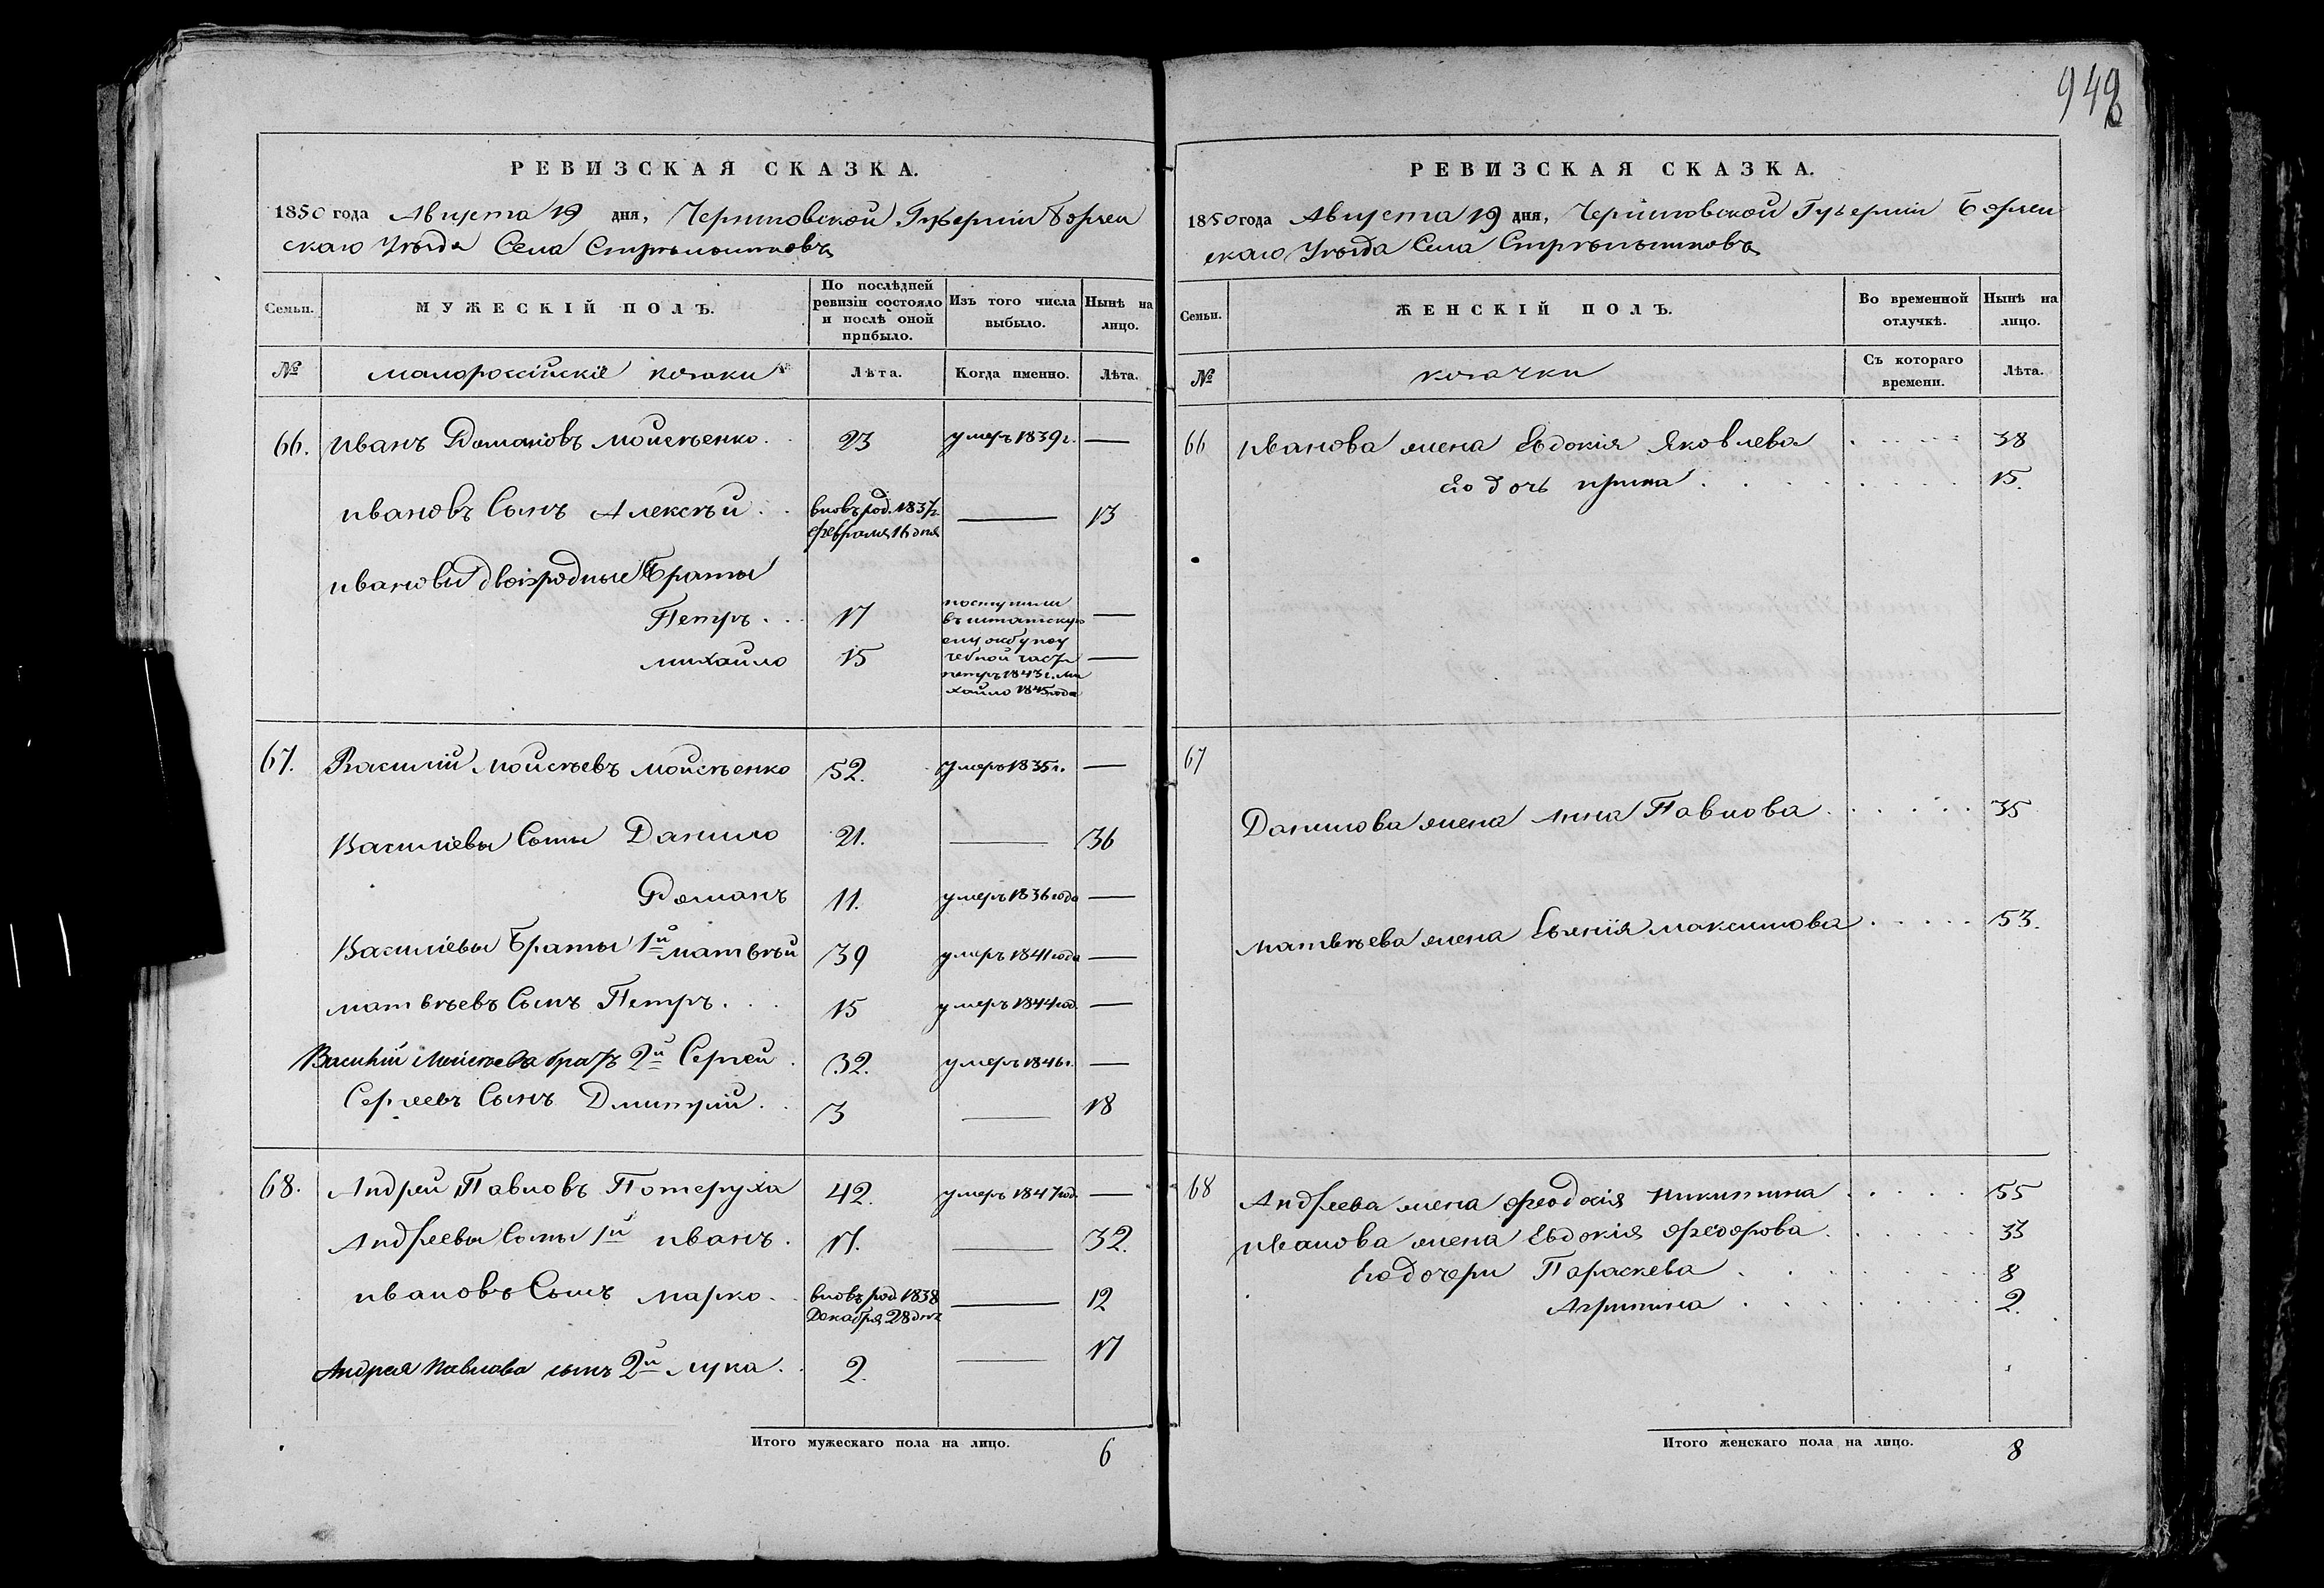 949
РЕВИЗСКАЯ СКАЗКА.
1850 года Августа 19 дня, Черниговской Губерніи Борзен
скаго Уѣзда Села Стрѣльниковъ
Семьи.
МУЖЕСКІЙ ПОЛЪ.
По послѣдней
ревизіи состояло
и послѣ оной
прибыло.
Изъ того числа
выбыло.
Нынѣ на
лицо.
№
малороссійскіе козаки
Лѣта.
Когда именно.
Лѣта.
66. Иванъ Романовъ Моисѣенко. 23 умеръ 1839 г. —
Ивановъ Сынъ Алексѣй . . вновь род. 1837 г. — 13
февраля 16 дня
Ивановы двоюродные Браты
Петръ . . 17 —
Михайло 15 —
поступили
въ штатскую
службу поу
чебной части
Петръ 1843 г. Ми
хайло 1845 года
67. Василій Моисѣевъ Моисѣенко 52. умеръ 1835 г. —
Василіевы Сыны Данило 21. — 36
Романъ 11. умеръ 1836 года —
Василіевы Браты 1й Матвѣй 39 умеръ 1841 года —
Матвѣевъ Сынъ Петръ. . . 15 умеръ 1844 год. —
Василій Моисѣева братъ 2й Сергей . 32. умеръ 1846 г. —
Сергеевъ Сынъ Дмитрій . . 3 — 18
68. Андрей Павловъ Потеруха 42. умеръ 1847 год. —
Андреевы Сыны 1й Иванъ . 17. — 32.
Ивановъ Сынъ Марко . . вновь род 1838 — 12
Декабря 28 дня
Андрея Павлова сынъ 2й Лука . . 2. — 17
Итого мужескаго пола на лицо. 6
РЕВИЗСКАЯ СКАЗКА.
1850 года Августа 19 дня, Черниговской Губерніи Борзен
скаго Уѣзда Села Стрѣльниковъ
Семьи.
ЖЕНСКІЙ ПОЛЪ.
Во временной
отлучкѣ.
Нынѣ на
лицо.
№
козачки
Съ котораго
времени.
Лѣта.
66 Иванова жена Евдокія Яковлева . . . . . 38
Его дочь Ирина . . . . . . . 15.
67
Данилова жена Анна Павлова . . . . . 35
Матвѣева жена Евгенія Максимова . . . . . 53.
68 Андреева жена Феодосія Никитина . . . . . 55
Иванова жена Евдокія Феодорова . . . . . . 33
Его дочери Параскева . . . . . . 8
Агрипина . . . . . . 2.
Итого женскаго пола на лицо. 8